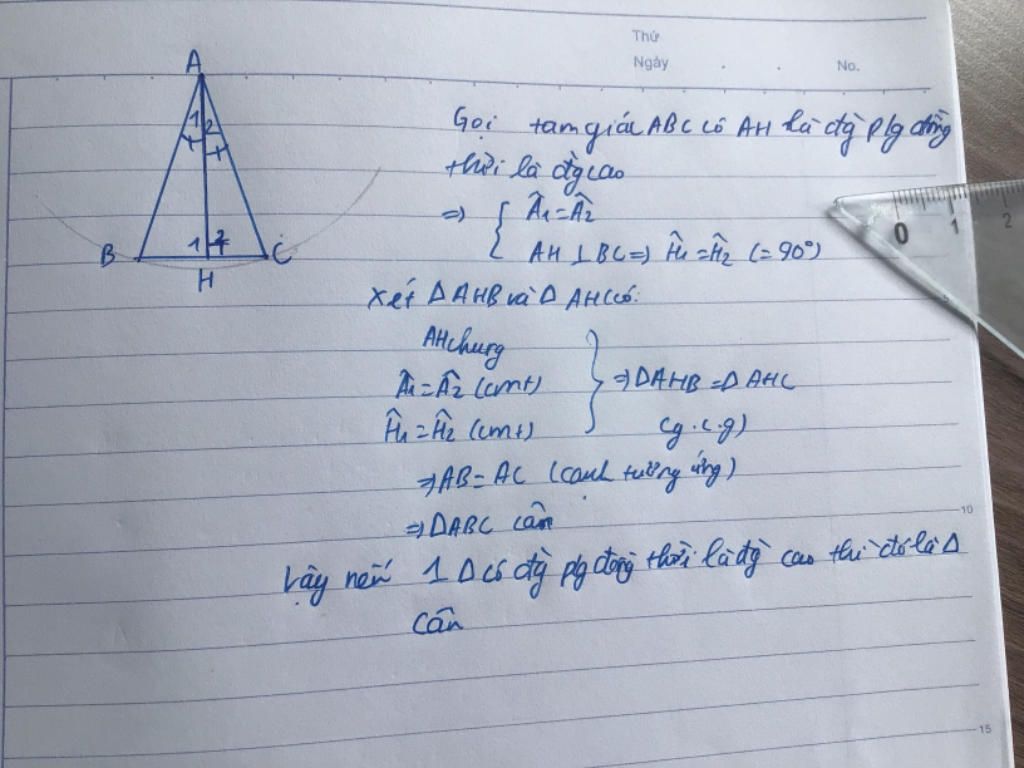 Thứ
Ngày
No.
A
1 2
B
1 2
C
H
Gọi tam giác ABC có AH là đg plg đồng
thời là đg cao
⇒ { Â1 = Â2
AH ⊥ BC ⇒ Ĥ1 = Ĥ2 (= 90°)
Xét Δ AHB và Δ AHC có:
AH chung
Â1 = Â2 (cmt)
Ĥ1 = Ĥ2 (cmt)
} ⇒ ΔAHB = ΔAHC
(g.c.g)
⇒ AB = AC (cạnh tương ứng)
⇒ ΔABC cân
Vậy nếu 1 Δ có đg plg đồng thời là đg cao thì đó là Δ
cân
0 1 2
5
10
15